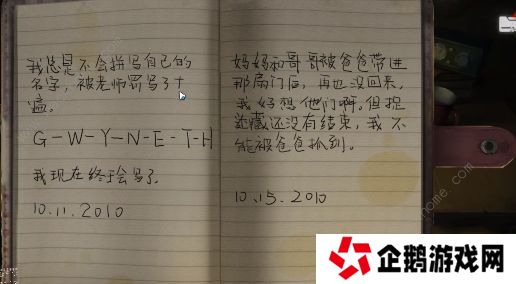 我总是不会拼写自己的
名字，被老师罚写了十
遍。
G-W-Y-N-E-T-H
我现在终于会写了。
10.11.2010
妈妈和哥哥被爸爸带进
那扇门后，再也没回来，
我好想他们啊。但捉
迷藏还没有结束，我不
能被爸爸抓到。
10.15.2010
企鹅游戏网